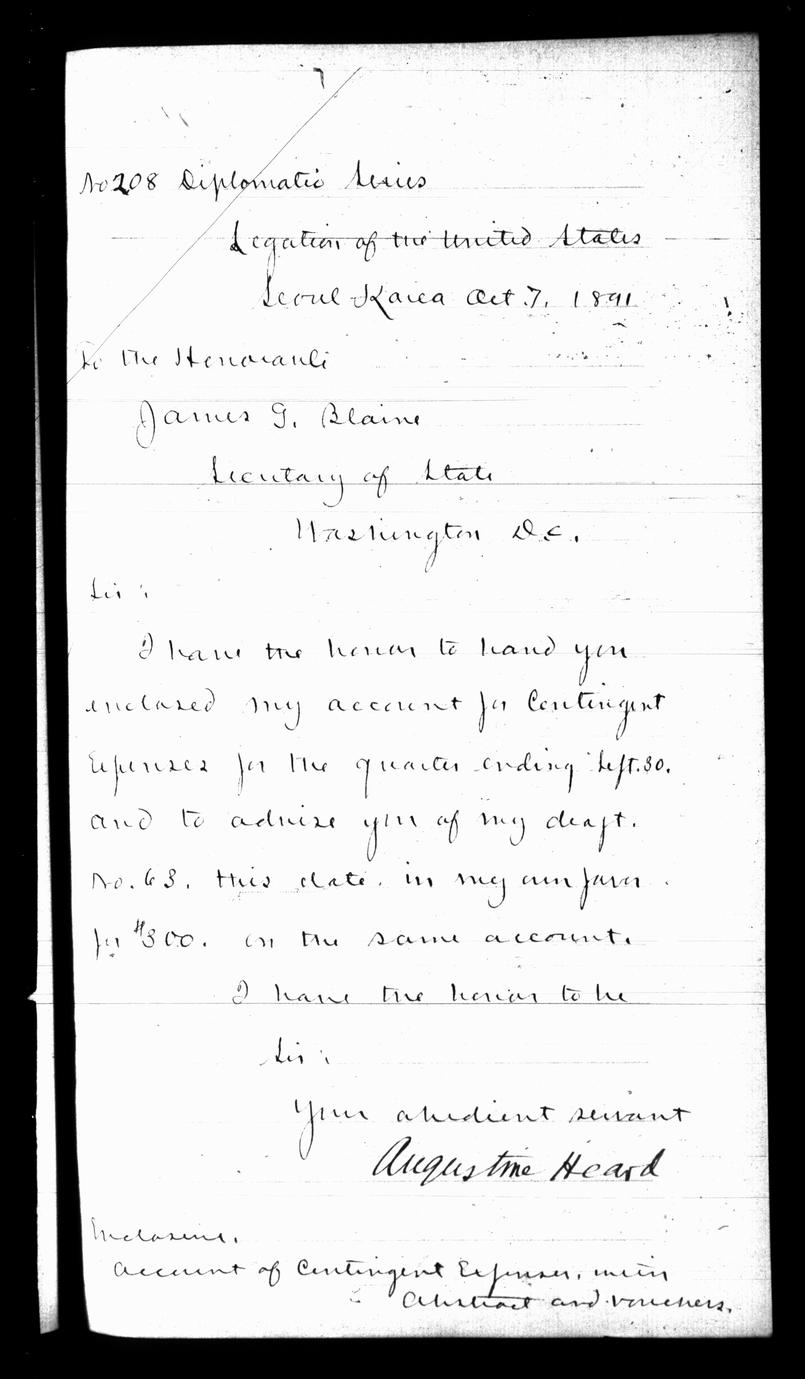 No 208 Diplomatic Series
Legation of the United States
Seoul Korea Oct. 7, 1891
To the Honorable
James G. Blaine
Secretary of State
Washington D.C.
Sir:
I have the honor to hand you
enclosed my account for Contingent
Expenses for the quarter ending Sept. 30.
and to advise you of my draft.
No. 63. this date. in my own favor.
for $300. on the same account.
I have the honor to be
Sir:
Your obedient servant
Augustine Heard
Enclosure.
Account of Contingent Expenses, with
Abstract and vouchers.